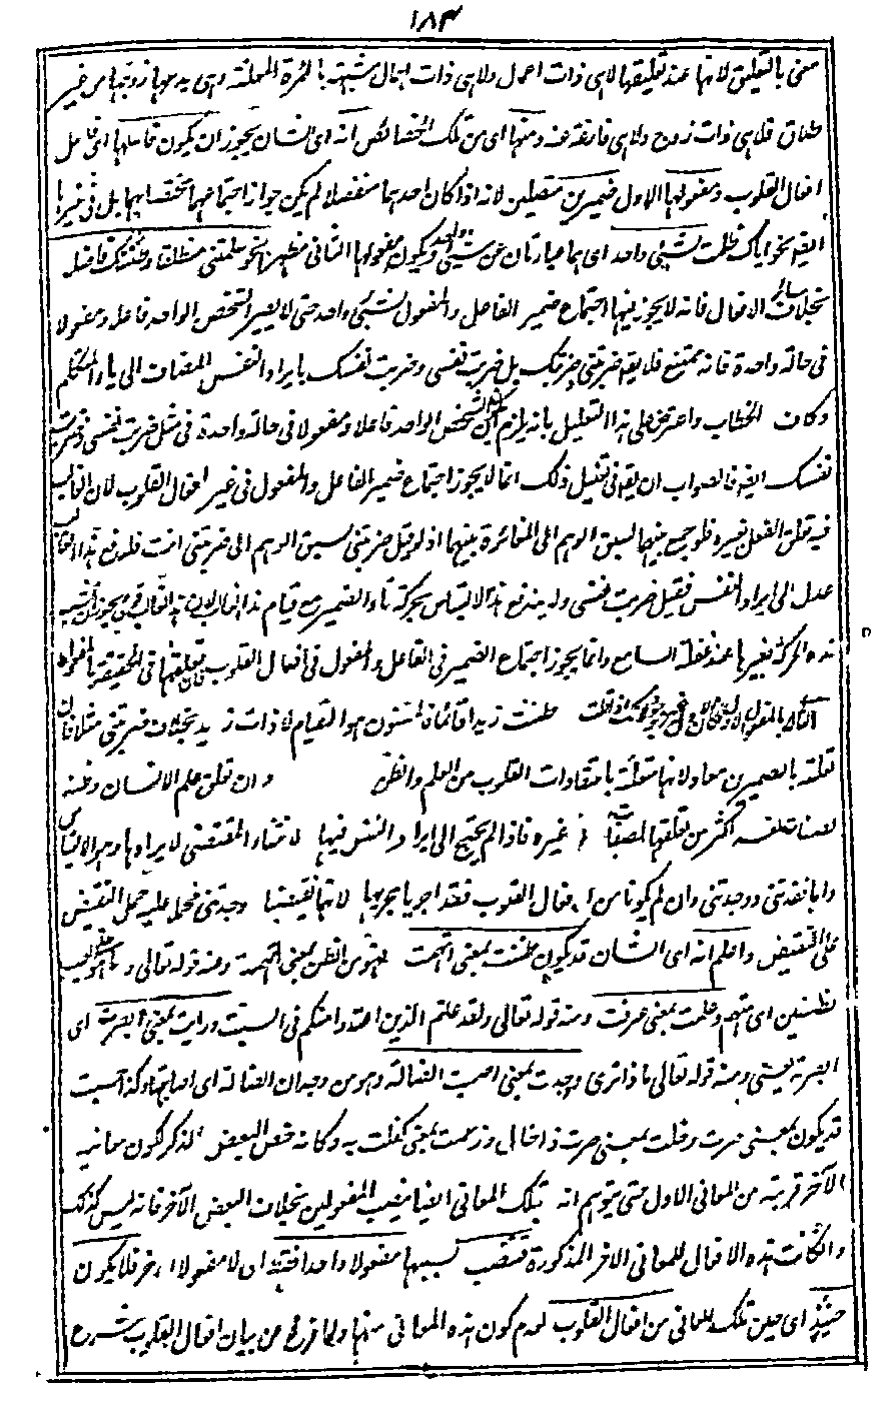 ١٨٣
معنى بالتعليق لانها عند تعليقها لاهي ذات اعمال ولاهي ذات اهمال مشبهة بالمرأة المعلقة وهي يدعها زوجها من غير
طلاق فلاهي ذات زوج ولاهي فارغة عنه ومنها اى من تلك الخصائص انه اى الشان يجوز ان يكون فاعلها اى فاعل
افعال القلوب ومفعولها الاول ضميرين متصلين لانه اذا كان احدهما منفصلا لم يكن جواز اجتماعهما مختصا بها بل فى غيرها
ايضا نحو اياك ظلمت لشيئ واحد اى هما عبارتان عن شيئ واحد ويكون مفعولها الثانى مظهرا نحو علمتنى منطلقا وظننتك فاضلا
بخلاف سائر الافعال فانه لا يجوز فيها اجتماع ضمير الفاعل والمفعول لشيئ واحد حتى لا يصير الشخص الواحد فاعلا ومفعولا
فى حالة واحدة فانه ممتنع فلا يقو ضربتنى وضربتك بل ضربت نفسى وضربت نفسك بايراد النفس المضاف الى ياء المتكلم
وكاف الخطاب واعترض على هذا التعليل بانه يلزم كون الشخص الواحد فاعلا ومفعولا فى حالة واحدة فى مثل ضربت نفسى وضربت
نفسك ايضا فالصواب ان يقو فى تعليل ذلك انما لا يجوز اجتماع ضمير الفاعل والمفعول فى غير افعال القلوب لان الغالب
فيه تعلق الفعل بغيره فلو جمع بينهما لسبق الوهم الى المغائرة بينهما اذ لو قيل ضربتنى لسبق الوهم الى ضربتنى انت فلرفع هذا الالتباس
عدل الى ايراد النفس فقيل ضربت نفسى ولم يندفع هذا الالتباس بحركة تاء الضمير مع قيام هذا الغالب
هذه الحركة بغيرها عند غفلة السامع وانما يجوز اجتماع الضمير فى الفاعل والمفعول فى افعال القلوب فان تعلقها فى الحقيقة
ظننت زيدا قائما فالمظنون هو القيام لا ذات زيد بخلاف ضربتنى مثلا فان
تعلقه بالضميرين معا ولانها متعلقة باعتقادات القلوب من العلم والظن وان تعلق علم الانسان وظنه
بصفات نفسه اكثر من تعلقها بصفات غيره فاذا لم يحتج الى ايراد النفس فيها لانتفاء المقتضى لايرادها وهو الالتباس
واما فقدتنى ووجدتنى وان لم يكونا من افعال القلوب فقد اجريا مجريها لانها نقيضتا وجدتنى فحمل عليه حمل النقيض
على النقيض واعلم انه اى الشان قد يكون ظننت بمعنى اتهمت فهو من الظن بمعنى التهمة ومنه قوله تعالى وما هو على الغيب
بظنين اى بمتهم وعلمت بمعنى عرفت ومنه قوله تعالى ولقد علمتم الذين اعتدوا منكم فى السبت ورايت بمعنى ابصرت اى
ابصرته بعينى ومنه قوله تعالى ماذا ترى ووجدت بمعنى اصبت الضالة وهو من وجدان الضالة اى اصابتها وكذا حسبت
قد يكون بمعنى صرت وخلت بمعنى صرت ذا خال وزعمت بمعنى كفلت به وكانه خص البعض بالذكر لكون معانيه
الآخر قريبة من المعانى الاول حتى يتوهم انه بتلك المعانى ايضا ينصب المفعولين بخلاف البعض الآخر فانه ليس كذلك
واذا كانت هذه الافعال للمعانى الاخر المذكورة تنصب بسببها مفعولا واحدا فقط اى لا مفعولا آخر فلا يكون
حينئذ اى حين تلك المعانى من افعال القلوب لعدم كون هذه المعانى منها ولما فرغ من بيان افعال القلوب شرع